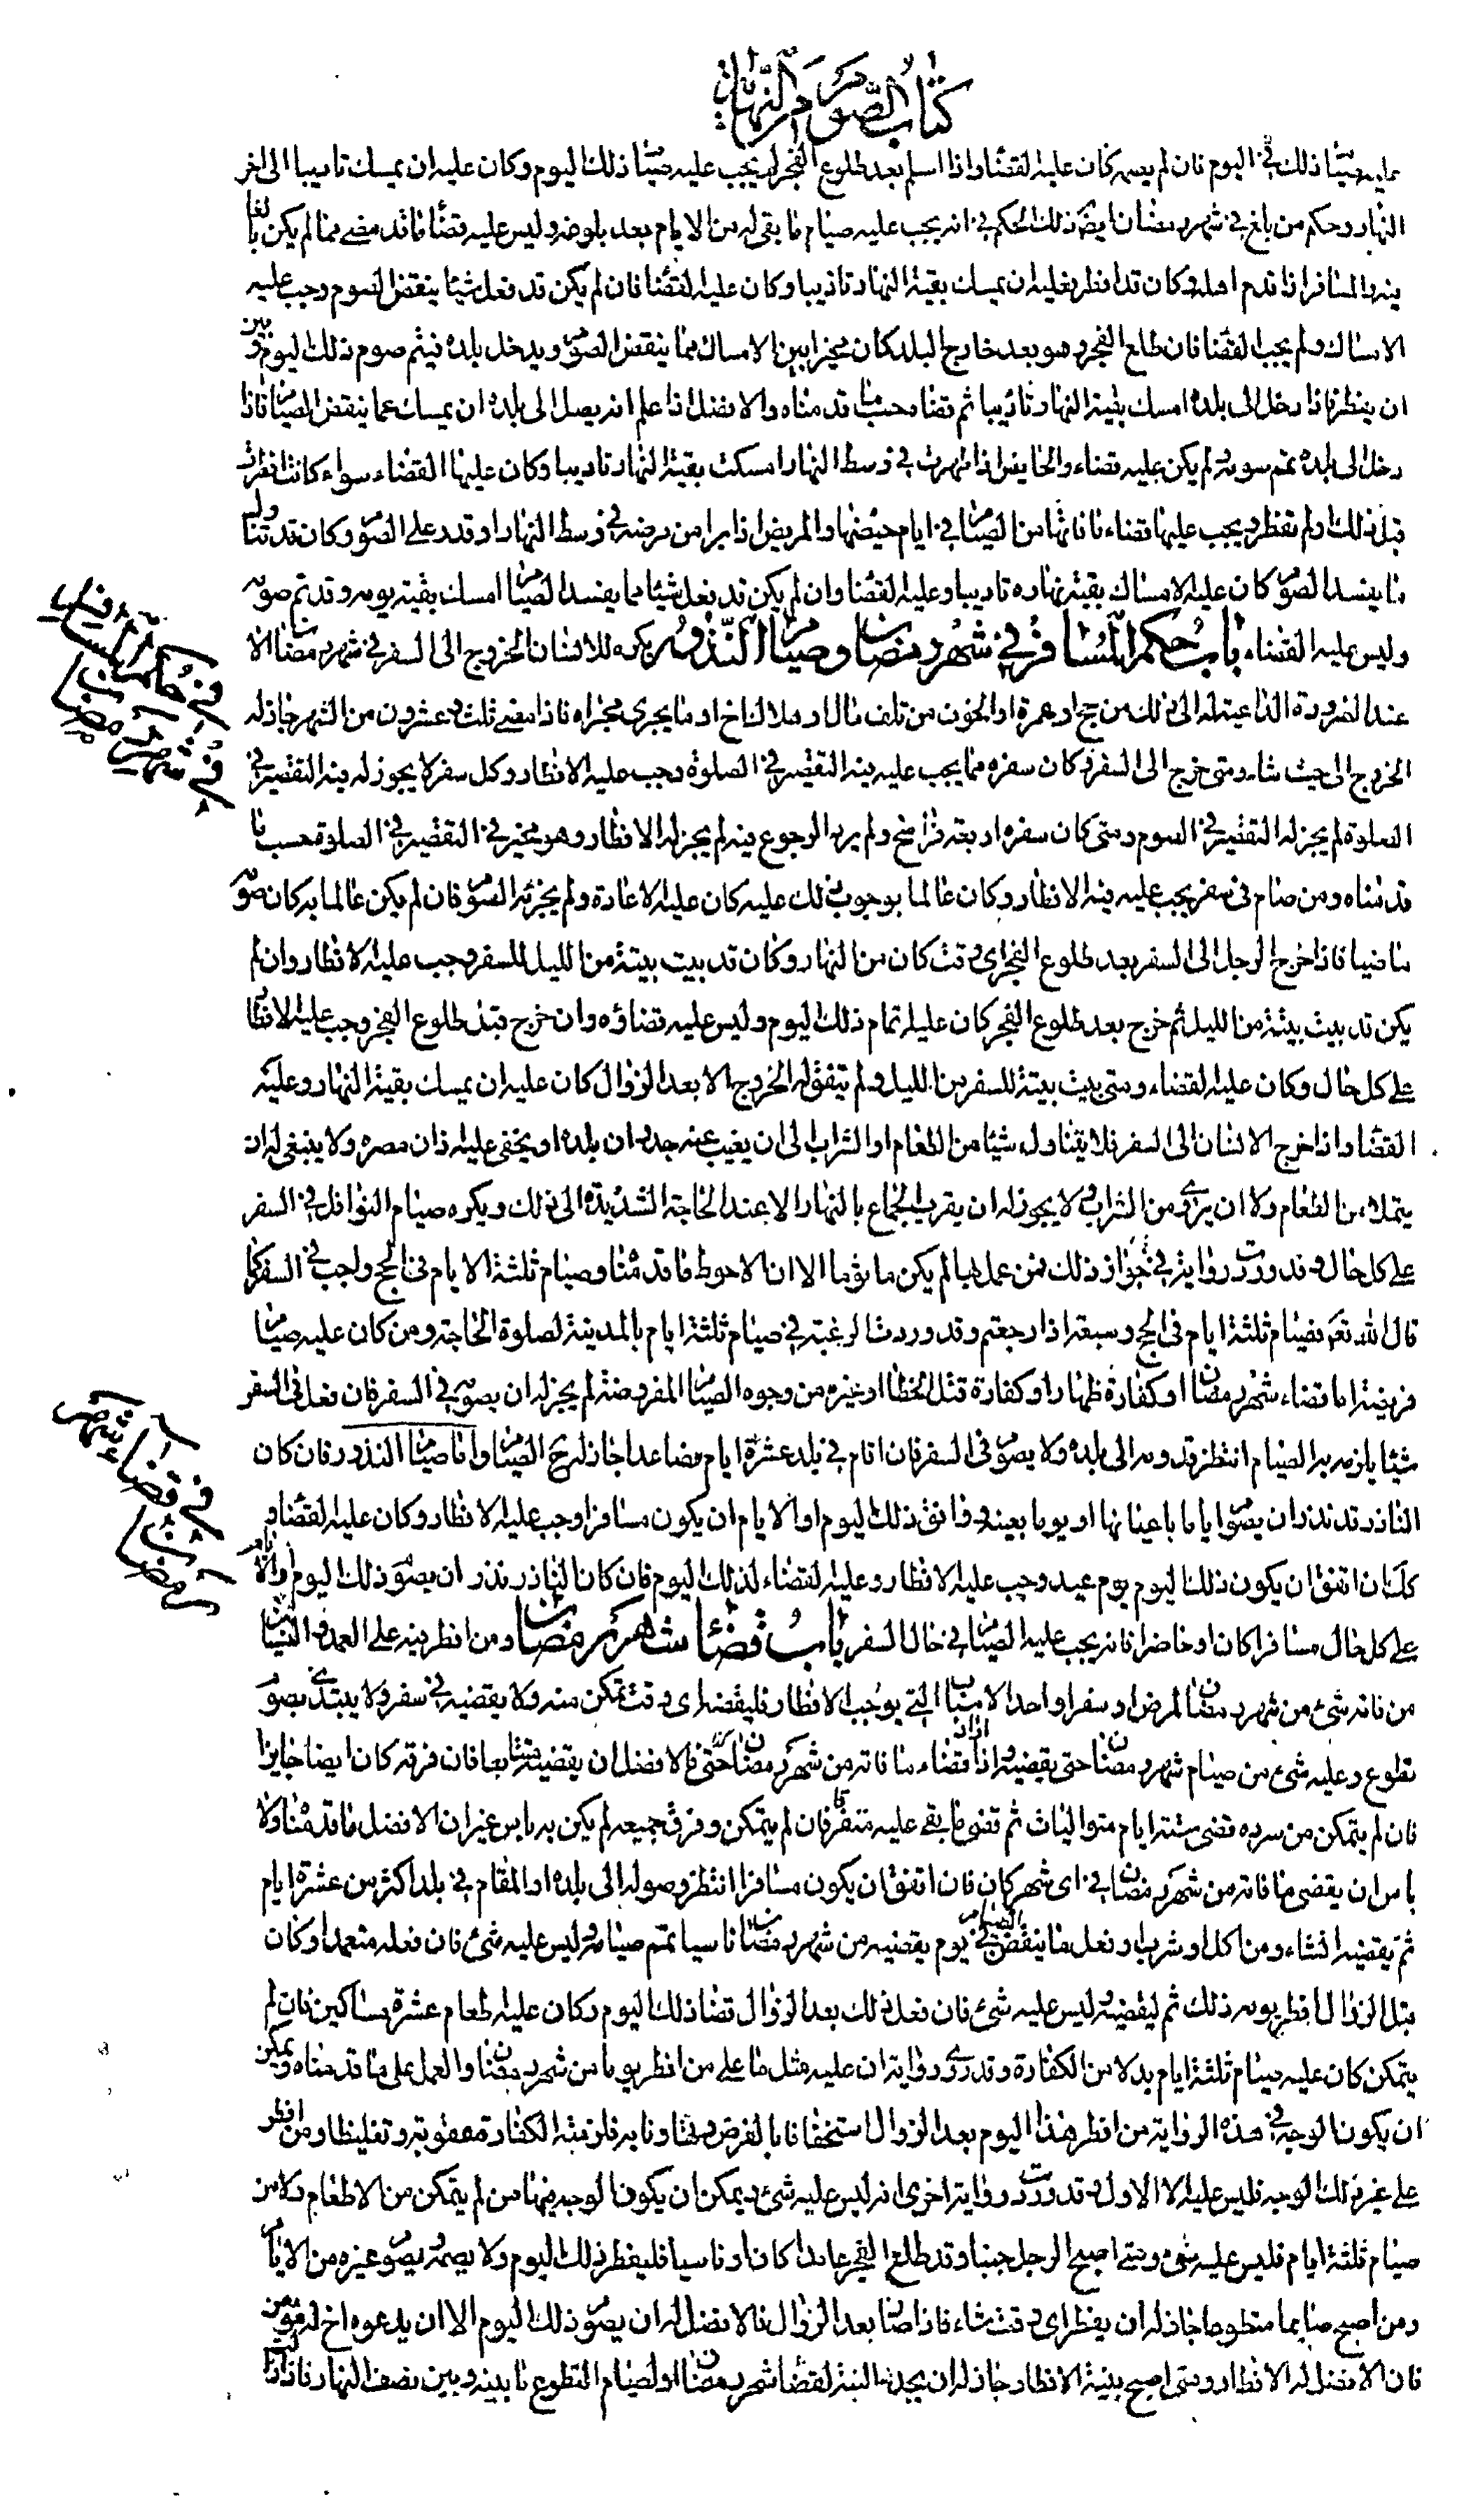 كتاب الصوم من النهاية
عليه صيام ذلك اليوم فان لم يصمه كان عليه القضاء واذا اسلم بعد طلوع الفجر لم يجب عليه صيام ذلك اليوم وكان عليه ان يمسك تاديبا الى اخر
النهار وحكم من بلغ في شهر رمضان ايضا ذلك الحكم في انه يجب عليه صيام ما بقي له من الايام بعد بلوغه وليس عليه قضاء ما قد مضى مما لم يكن بالغا
فيه والمسافر اذا قدم اهله وكان قد افطر فعليه ان يمسك بقية النهار تاديبا وكان عليه القضاء فان لم يكن قد فعل شيئا ينقض الصوم وجب عليه
الامساك ولم يجب القضاء فان طلع الفجر وهو بعد خارج البلد كان مخيرا بين الامساك مما ينقض الصوم ويدخل بلده فيتم صوم ذلك اليوم وبين
ان يفطر فاذا دخل الى بلده امسك بقية النهار تاديبا ثم قضاه حسب ما قدمناه والافضل اذا علم انه يصل الى بلده ان يمسك عما ينقض الصيام فاذا
دخل الى بلده تمم صومه ولم يكن عليه قضاء والحايض اذا طهرت في وسط النهار امسكت بقية النهار تاديبا وكان عليها القضاء سواء كانت افطرت
قبل ذلك او لم تفطر ويجب عليها قضاء ما فاتها من الصيام في ايام حيضها والمريض اذا برا من مرضه في وسط النهار او قدر على الصوم وكان قد تناول
ما يفسد الصوم كان عليه الامساك بقية نهاره تاديبا وعليه القضاء وان لم يكن قد فعل شيئا مما يفسد الصيام امسك بقية يومه وقد تم صومه
وليس عليه القضاء باب حكم المسافر في شهر رمضان وصيام النذور يكره للانسان الخروج الى السفر في شهر رمضان الا
عند الضرورة الداعية له الى ذلك من حج او عمرة او الخوف من تلف مال او هلاك اخ او ما يجري مجراه فاذا مضى ثلثة وعشرون من الشهر جاز له
الخروج الى حيث شاء ومتى خرج الى السفر وكان سفره مما يجب عليه فيه التقصير في الصلوة وجب عليه الافطار وكل سفر لا يجوز له فيه التقصير في
الصلوة لم يجز له التقصير في الصوم ومتى كان سفره اربعة فراسخ ولم يرد الرجوع فيه لم يجز له الافطار وهو مخير في التقصير في الصلوة حسب ما
قدمناه ومن صام في سفر يجب عليه فيه الافطار وكان عالما بوجوب ذلك عليه كان عليه الاعادة ولم يجزئه الصوم فان لم يكن عالما به كان صومه
ماضيا فاذا خرج الرجل الى السفر بعد طلوع الفجر اي وقت كان من النهار وكان قد بيت بيتة من الليل للسفر وجب عليه الافطار وان لم
يكن قد بيت بيتة من الليل ثم خرج بعد طلوع الفجر كان عليه تمام ذلك اليوم وليس عليه قضاؤه وان خرج قبل طلوع الفجر وجب عليه الافطار
على كل حال وكان عليه القضاء ومتى بيت بيتة للسفر من الليل ولم يتفق له الخروج الا بعد الزوال كان عليه ان يمسك بقية النهار وعليه
القضاء واذا خرج الانسان الى السفر فلا يتناول شيئا من الطعام او الشراب الى ان يغيب عنه جدران بلده او يخفى عليه اذان مصره ولا ينبغي له ان
يتملا من الطعام ولا ان يروي من الشراب ولا يجوز له ان يقرب الجماع بالنهار الا عند الحاجة الشديدة الى ذلك ويكره صيام النوافل في السفر
على كل حال وقد وردت رواية في جواز ذلك فمن عمل بها لم يكن ماثوما الا ان الاحوط ما قدمناه وصيام ثلثة الايام في الحج واجب في السفر كما
قال الله تعالى فصيام ثلثة ايام في الحج وسبعة اذا رجعتم وقد وردت الرغبة في صيام ثلثة ايام بالمدينة لصلوة الحاجة ومن كان عليه صيام
فريضة اما قضاء شهر رمضان او كفارة ظهار او كفارة قتل الخطا او غيره من وجوه الصيام المفروضة لم يجز له ان يصومه في السفر فان فعل في السفر
شيئا يلزمه به الصيام انتظر قدومه الى بلده ولا يصوم في السفر فان اقام في بلد عشرة ايام فصاعدا جاز له ح الصيام واما صيام النذور فان كان
الناذر قد نذر ان يصوم اياما باعيانها او يوما بعينه ووافق ذلك اليوم او الايام ان يكون مسافرا وجب عليه الافطار وكان عليه القضاء و
كك ان اتفق ان يكون ذلك اليوم يوم عيد وجب عليه الافطار وعليه القضاء لذلك اليوم فان كان الناذر نذر ان يصوم ذلك اليوم او الايام
على كل حال مسافرا كان او حاضرا فانه يجب عليه الصيام في حال السفر باب قضاء شهر رمضان ومن افطر فيه على العمد والنسيان
من فاته شيء من شهر رمضان لمرض او سفر او احد الاسباب التي يوجب الافطار فليقضه اي وقت تمكن منه ولا يقضيه في سفر ولا يبتدئ بصوم
تطوع وعليه شيء من صيام شهر رمضان حتى يقضيه واذا اراد قضاء ما فاته من شهر رمضان فالافضل ان يقضيه متتابعا فان فرقه كان ايضا جايزا
فان لم يتمكن من سرده قضى ستة ايام متواليات ثم قضى ما بقي عليه متفرقا فان لم يتمكن وفرق جميعه لم يكن به باس غير ان الافضل ما قدمناه ولا
باس ان يقضي ما فاته من شهر رمضان في اي شهر كان فان اتفق ان يكون مسافرا انتظر وصوله الى بلده او المقام في بلد اكثر من عشرة ايام
ثم يقضيه انشاء ومن اكل او شرب او فعل ما ينقض الصيام في يوم يقضيه من شهر رمضان ناسيا تمم صيامه وليس عليه شيء فان فعله متعمدا وكان
قبل الزوال افطر يومه ذلك ثم ليقضه وليس عليه شيء فان فعل ذلك بعد الزوال قضا ذلك اليوم وكان عليه طعام عشرة مساكين فان لم
يتمكن كان عليه صيام ثلثة ايام بدلا من الكفارة وقد روي رواية ان عليه مثل ما على من افطر يوما من شهر رمضان والعمل على ما قدمناه ويمكن
ان يكون الوجه في هذه الرواية من افطر هذا اليوم بعد الزوال استخفافا بالفرض وتهاونا به فلزمته الكفارة عقوبة وتغليظا ومن افطر
على غير ذلك الوجه فليس عليه الا الاول وقد وردت رواية اخرى انه ليس عليه شيء ويمكن ان يكون الوجه فيها من لم يتمكن من الاطعام ولا من
صيام ثلثة ايام فليس عليه شيء ومتى اصبح الرجل جنبا وقد طلع الفجر عامدا كان او ناسيا فليفطر ذلك اليوم ولا يصمه ويصوم غيره من الايام
ومن اصبح صايما متطوعا جاز له ان يفطر اي وقت شاء فاذا صار بعد الزوال فالافضل له ان يصوم ذلك اليوم الا ان يدعوه اخ له مؤمن
فان الافضل له الافطار ومتى اصبح بنية الافطار جاز له ان يجدد النية لقضاء شهر رمضان او لصيام التطوع ما بينه وبين نصف النهار فاذا
في حكم المسافر
في شهر رمضان
في قضاء شهر
رمضان